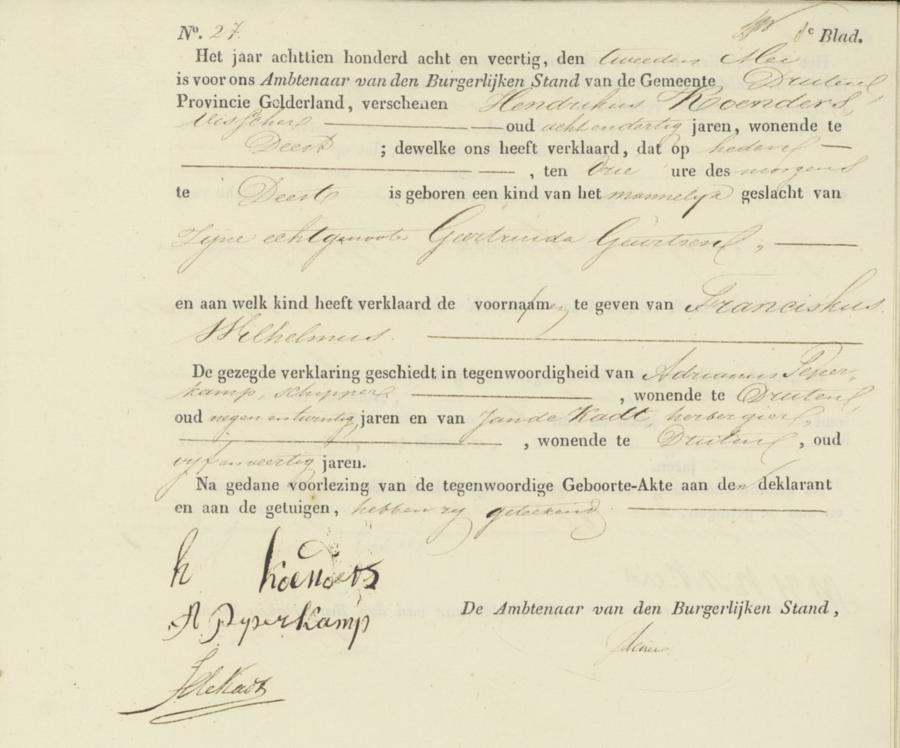 No. 27. 8e Blad.
Het jaar achttien honderd acht en veertig, den tweeden Mei
is voor ons Ambtenaar van den Burgerlijken Stand van de Gemeente Druten,
Provincie Gelderland, verschenen Hendrikus Koenders,
Visscher oud acht en dertig jaren, wonende te
Deest ; dewelke ons heeft verklaard, dat op heden
, ten drie ure des morgens
te Deest is geboren een kind van het mannelijk geslacht van
Zijne echtgenoote Geertruida Geurtsen,
en aan welk kind heeft verklaard de voornaamen te geven van Franciskus
Wilhelmus.
De gezegde verklaring geschiedt in tegenwoordigheid van Adrianus Peper-
kamp, schipper , wonende te Druten,
oud negen en twintig jaren en van Jan de Kadt, herbergier,
, wonende te Druten , oud
vyf en veertig jaren.
Na gedane voorlezing van de tegenwoordige Geboorte-Akte aan den deklarant
en aan de getuigen, hebben zy geteekend
h Koenders
A Pyperkamp
De Ambtenaar van den Burgerlijken Stand,
JdeKadt